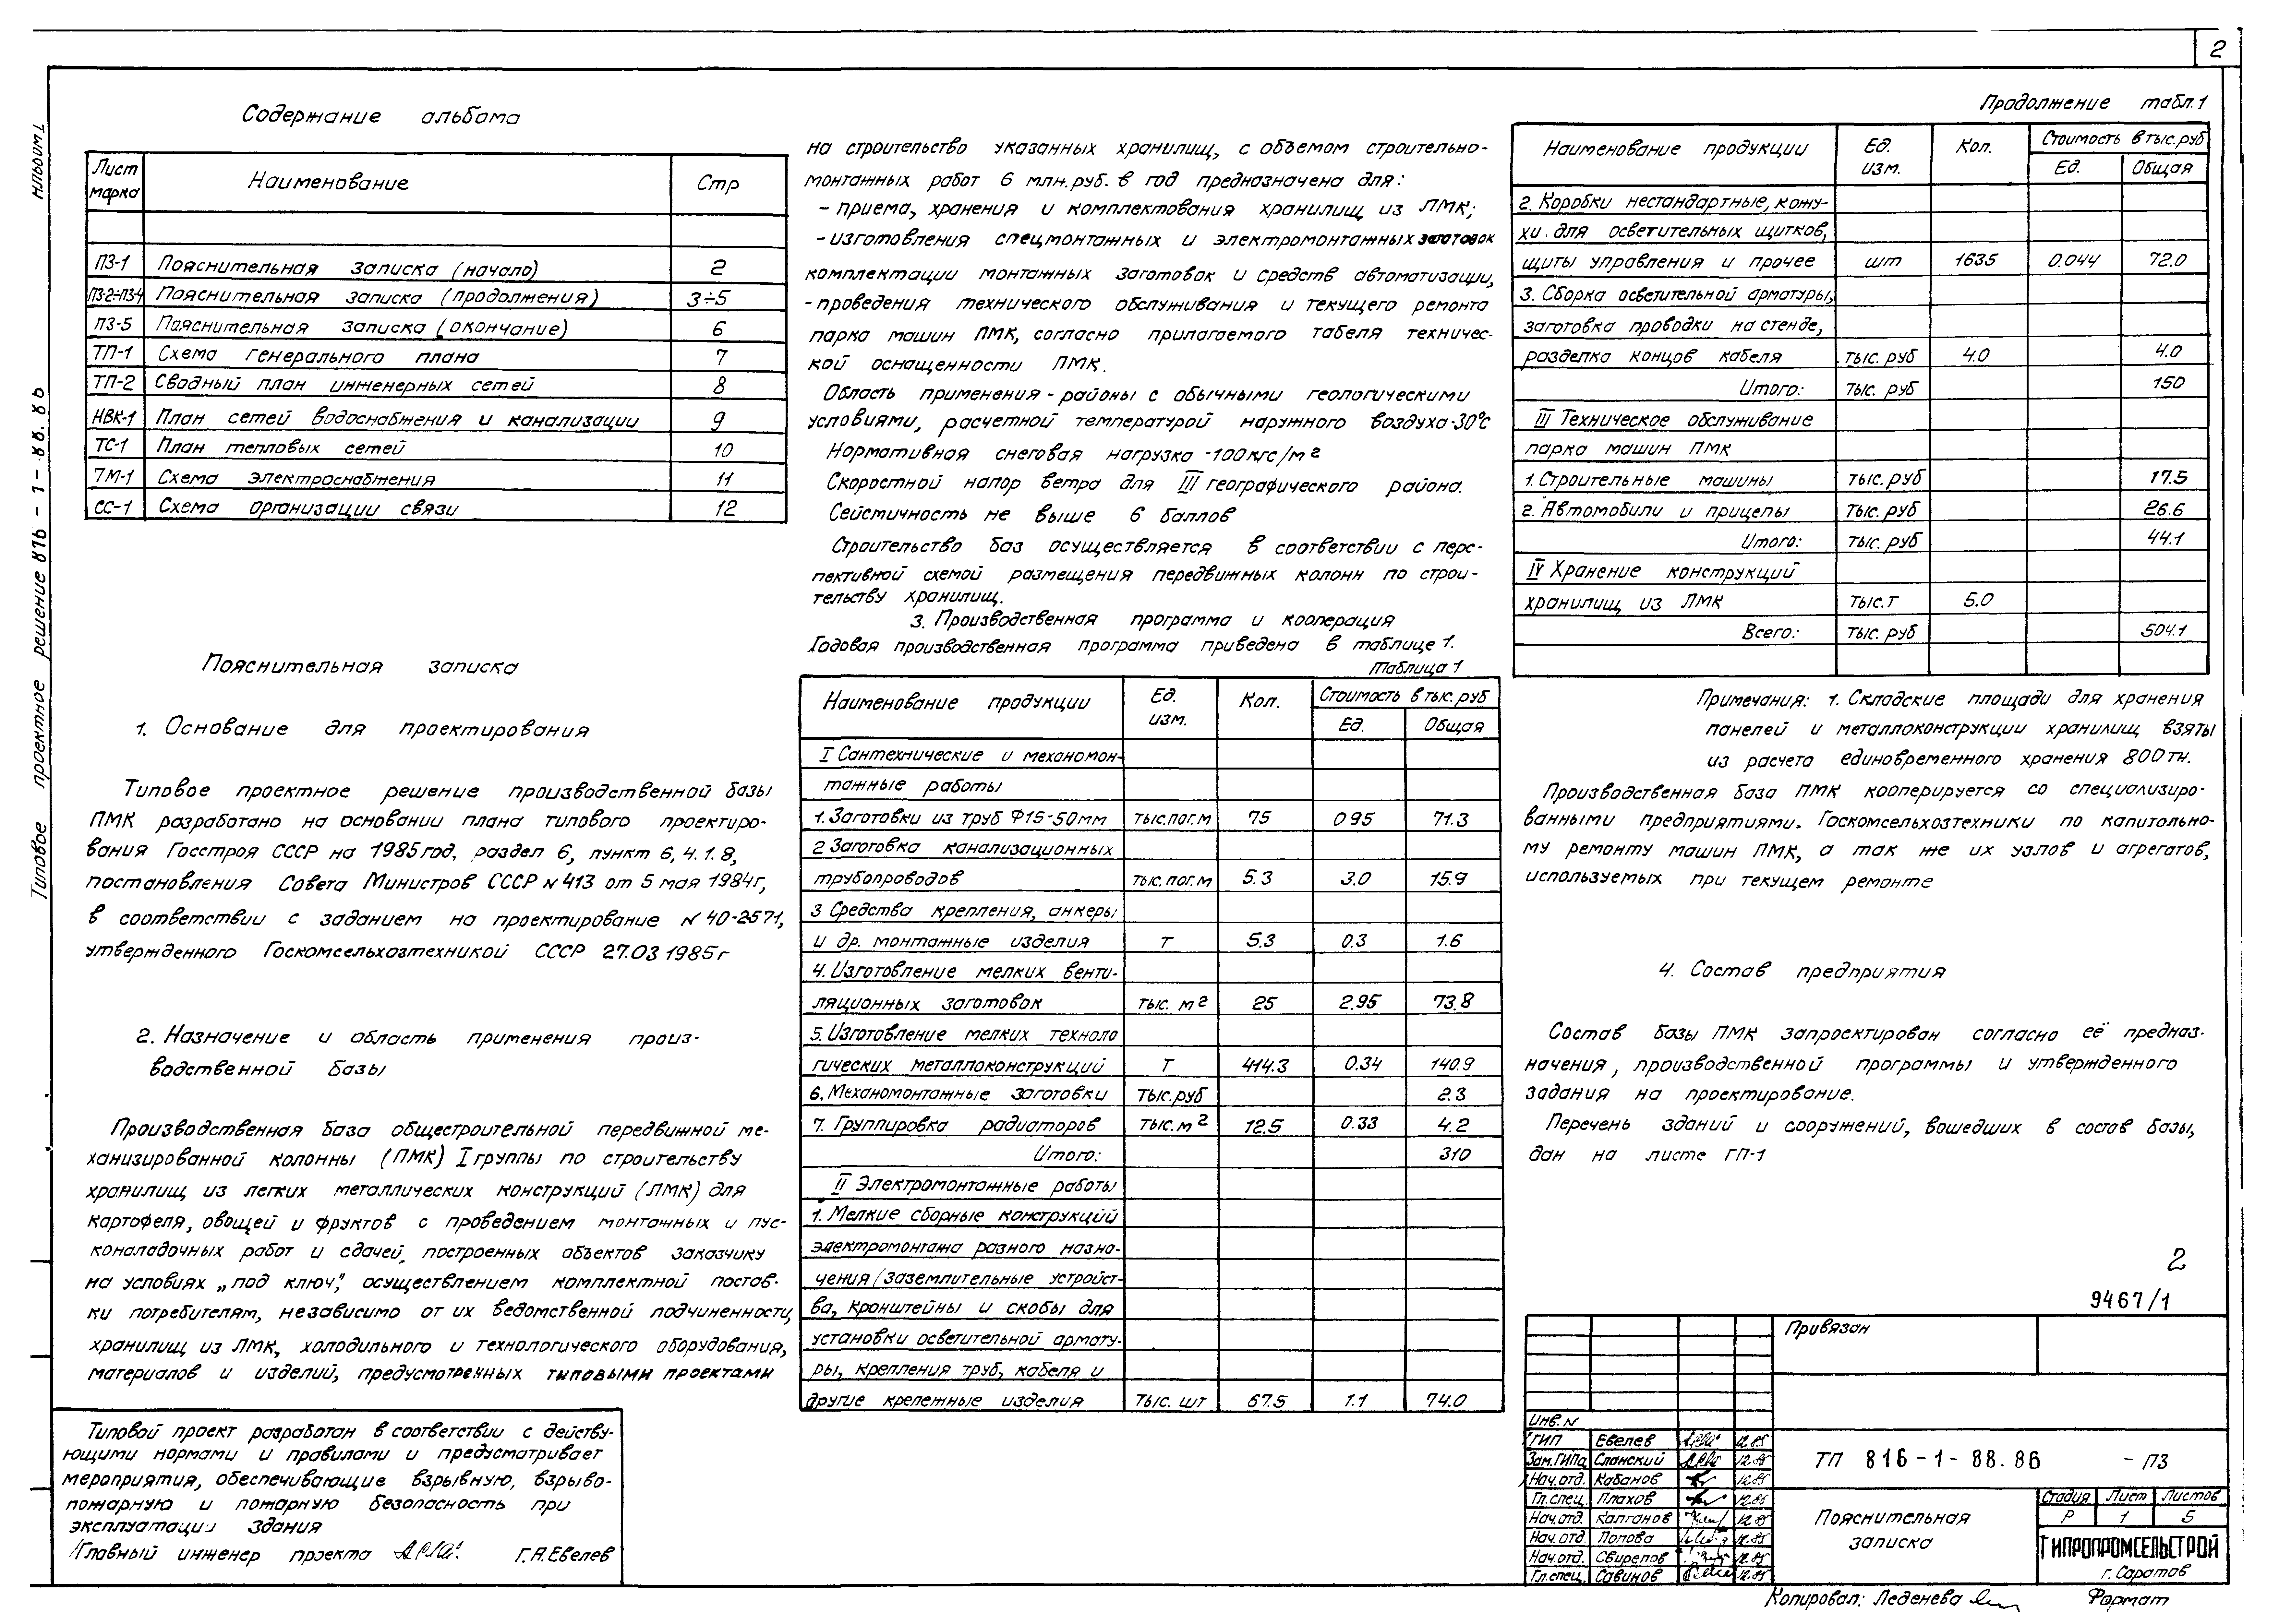 2
Типовое проектное решение 816-1-88.86
Содержание альбома
Лист марка Наименование Стр
ПЗ-1 Пояснительная записка (начало) 2
ПЗ-2÷ПЗ-4 Пояснительная записка (продолжения) 3÷5
ПЗ-5 Пояснительная записка (окончание) 6
ТП-1 Схема генерального плана 7
ТП-2 Сводный план инженерных сетей 8
НВК-1 План сетей водоснабжения и канализации 9
ТС-1 План тепловых сетей 10
ТМ-1 Схема электроснабжения 11
СС-1 Схема организации связи 12
Пояснительная записка
1. Основание для проектирования
Типовое проектное решение производственной базы
ПМК разработано на основании плана типового проектиро-
вания Госстроя СССР на 1985 год, раздел 6, пункт 6,4.1.8,
постановления Совета Министров СССР N 413 от 5 мая 1984г,
в соответствии с заданием на проектирование N 40-2571,
утвержденного Госкомсельхозтехникой СССР 27.03 1985г
2. Назначение и область применения произ-
водственной базы
Производственная база общестроительной передвижной ме-
ханизированной колонны (ПМК) I группы по строительству
хранилищ из легких металлических конструкций (ЛМК) для
картофеля, овощей и фруктов с проведением монтажных и пус-
коналадочных работ и сдачей, построенных объектов заказчику
на условиях „под ключ", осуществлением комплектной постав-
ки потребителям, независимо от их ведомственной подчиненности,
хранилищ из ЛМК, холодильного и технологического оборудования,
материалов и изделий, предусмотренных типовыми проектами
Типовой проект разработан в соответствии с действу-
ющими нормами и правилами и предусматривает
мероприятия, обеспечивающие взрывную, взрыво-
пожарную и пожарную безопасность при
эксплуатации здания
Главный инженер проекта Г.А.Евелев
на строительство указанных хранилищ, с объемом строительно-
монтажных работ 6 млн.руб. в год предназначена для:
- приема, хранения и комплектования хранилищ из ЛМК;
- изготовления спецмонтажных и электромонтажных заготовок
комплектации монтажных заготовок и средств автоматизации,
- проведения технического обслуживания и текущего ремонта
парка машин ПМК, согласно прилагаемого табеля техничес-
кой оснащенности ПМК.
Область применения - районы с обычными геологическими
условиями, расчетной температурой наружного воздуха -30°С
Нормативная снеговая нагрузка -100кгс/м2
Скоростной напор ветра для III географического района.
Сейсмичность не выше 6 баллов
Строительство баз осуществляется в соответствии с перс-
пективной схемой размещения передвижных колонн по строи-
тельству хранилищ.
3. Производственная программа и кооперация
Годовая производственная программа приведена в таблице 1.
Таблица 1
Наименование продукции Ед. изм. Кол. Стоимость в тыс.руб
Ед. Общая
I Сантехнические и механомон-
тажные работы
1. Заготовки из труб Ф15-50мм тыс.пог.м 75 0 95 71.3
2 Заготовка канализационных
трубопроводов тыс. пог. м 5.3 3.0 15.9
3 Средства крепления, анкеры
и др. монтажные изделия т 5.3 0.3 1.6
4. Изготовление мелких венти-
ляционных заготовок тыс. м2 25 2.95 73.8
5. Изготовление мелких техноло
гических металлоконструкций т 414.3 0.34 140.9
6. Механомонтажные заготовки тыс.руб 2.3
7. Группировка радиаторов тыс.м2 12.5 0.33 4.2
Итого: 310
II Электромонтажные работы
1. Мелкие сборные конструкций
электромонтажа разного назна-
чения (заземлительные устройст-
ва, кронштейны и скобы для
установки осветительной армату-
ры, крепления труб, кабеля и
другие крепежные изделия тыс. шт 67.5 1.1 74.0
Продолжение табл.1
Наименование продукции Ед. изм. Кол. Стоимость в тыс.руб
Ед. Общая
2. Коробки нестандартные, кожу-
хи для осветительных щитков,
щиты управления и прочее шт 1635 0.044 72.0
3. Сборка осветительной арматуры,
заготовка проводки на стенде,
разделка концов кабеля тыс. руб 4.0 4.0
Итого: тыс. руб 150
III Техническое обслуживание
парка машин ПМК
1. Строительные машины тыс.руб 17.5
2. Автомобили и прицепы тыс.руб 26.6
Итого: тыс. руб 44.1
IV Хранение конструкций
хранилищ из ЛМК тыс.т 5.0
Всего: тыс. руб 504.1
Примечания: 1. Складские площади для хранения
панелей и металлоконструкции хранилищ взяты
из расчета единовременного хранения 800тн.
Производственная база ПМК кооперируется со специализиро-
ванными предприятиями. Госкомсельхозтехники по капитально-
му ремонту машин ПМК, а так же их узлов и агрегатов,
используемых при текущем ремонте
4. Состав предприятия
Состав базы ПМК запроектирован согласно её предназ-
начения, производственной программы и утвержденного
задания на проектирование.
Перечень зданий и сооружений, вошедших в состав базы,
дан на листе ГП-1
2
9467/1
Привязан
Инв. N
ГИП Евелев 12.85
Зам.ГИПа Спанский 12.85
Нач.отд. Кабанов 12.85
Гл.спец. Плахов 12.85
Нач.отд. Калганов 12.85
Нач.отд. Попова 12.85
Нач.отд. Свирепов 12.85
Гл.спец. Савинов 12.85
ТП 816-1-88.86 -ПЗ
Пояснительная
записка
Стадия Лист Листов
Р 1 5
ГИПРОПРОМСЕЛЬСТРОЙ
г. Саратов
Копировал: Леденева Формат